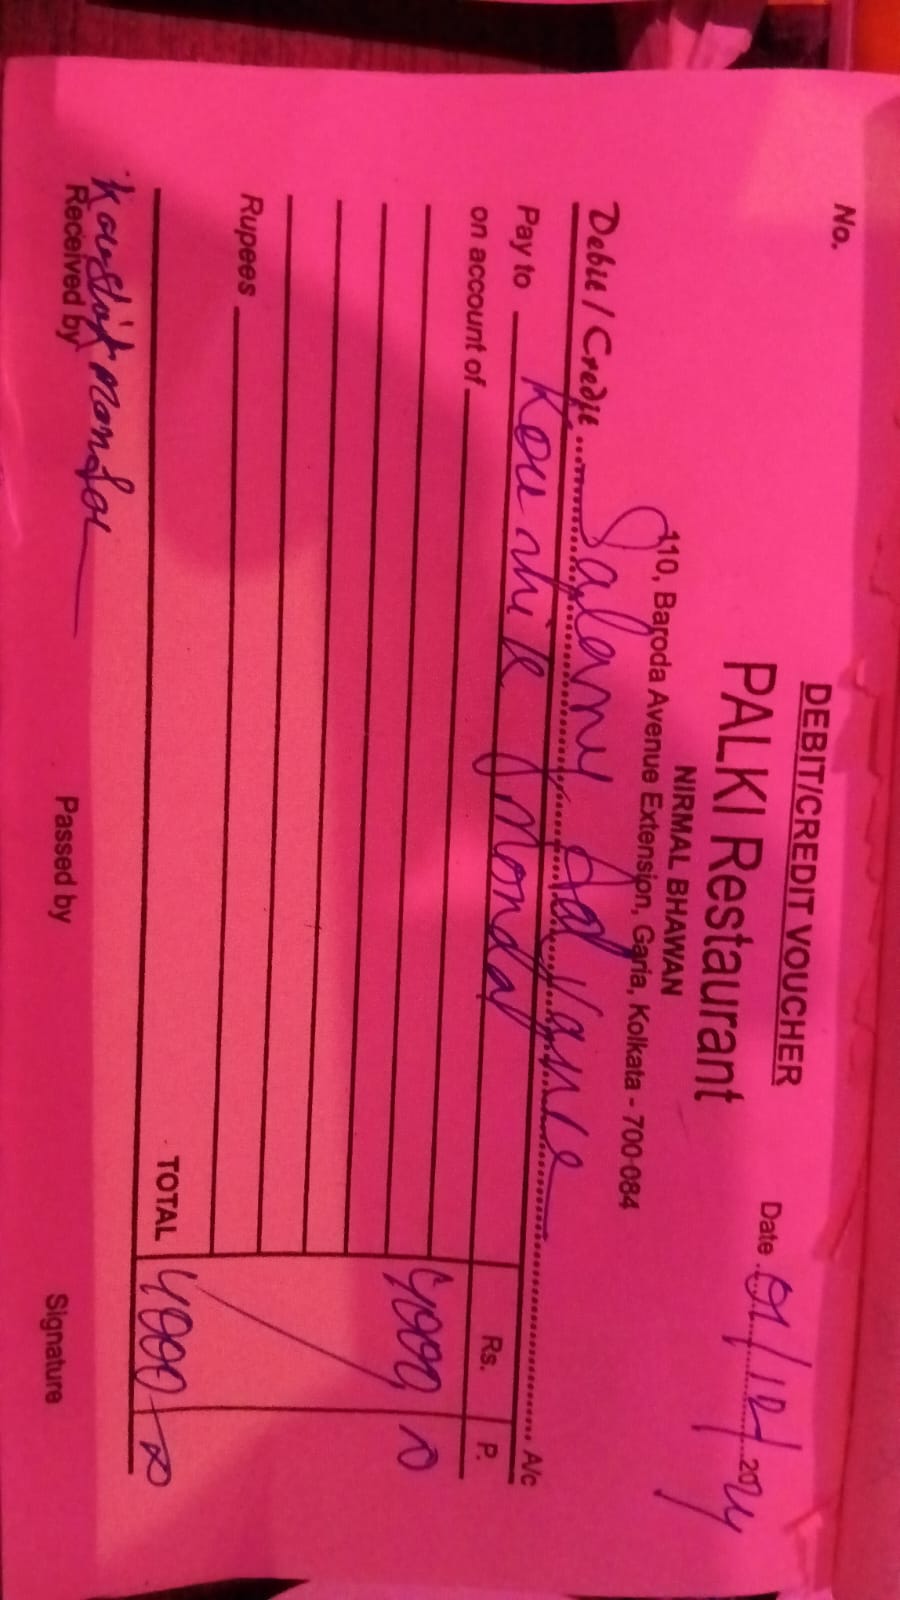 DEBIT/CREDIT VOUCHER
No.
PALKI Restaurant
Date 01/12/2024
NIRMAL BHAWAN
110, Baroda Avenue Extension, Garia, Kolkata - 700-084
Debit / Credit Salary Advance A/c
Pay to Koushik Mondal
on account of
Rs. P.
4000 00
Rupees
TOTAL 4000 00
Koushik Mondal
Received by Passed by Signature